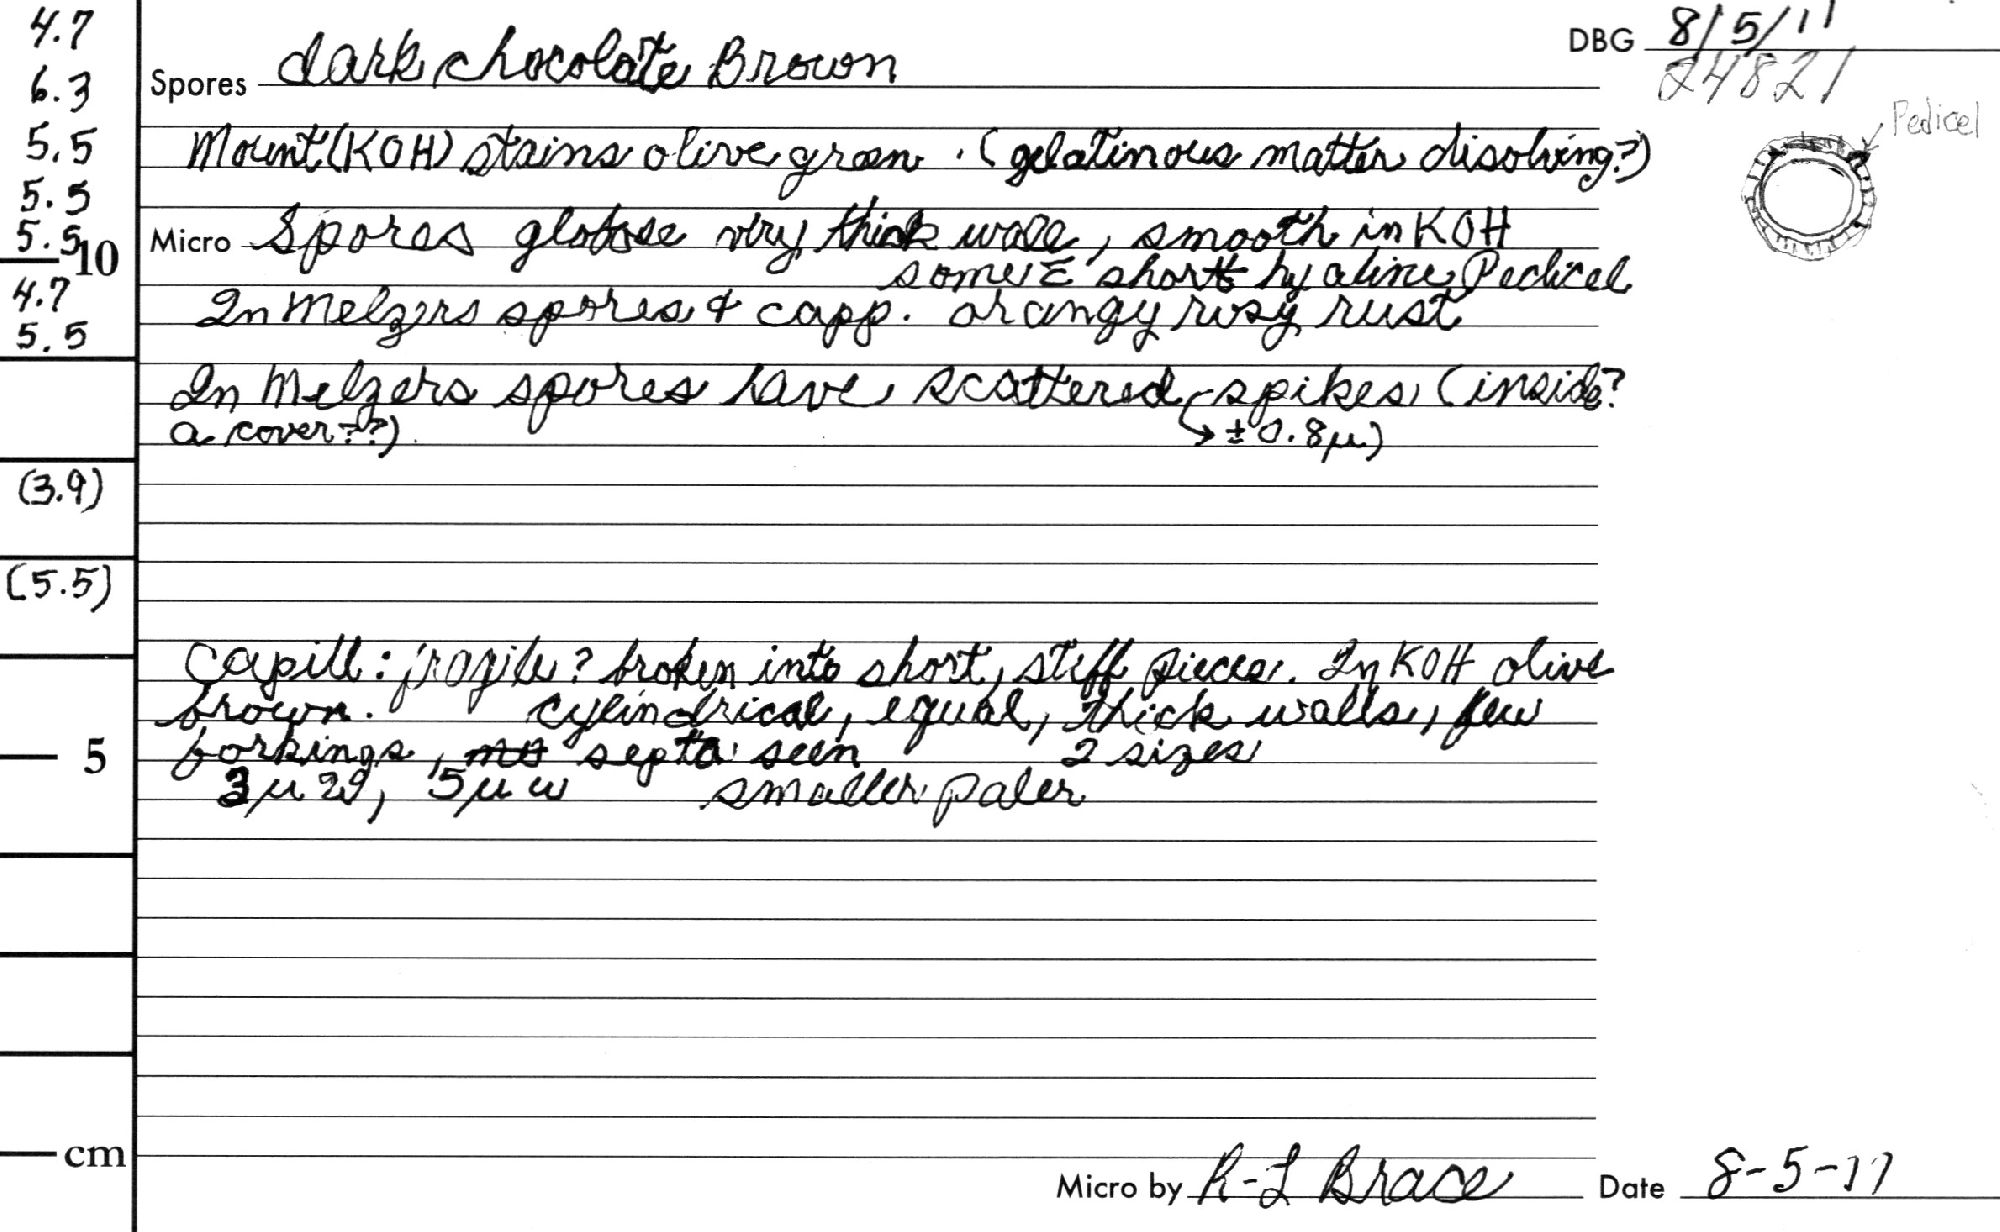 4.7
6.3
5.5
5.5
5.5
10
4.7
5.5
(3.9)
(5.5)
5
cm
DBG 8/5/11
24821
Pedicel
Spores dark chocolate Brown
Mount (KOH) stains olive green. (gelatinous matter disolving?)
Micro Spores globose very thick wall, smooth in KOH
some c̄ short hyaline Pedicel
In Melzers spores & capp. orangy rosy rust
In Melzers spores have scattered spikes (inside?
a cover??)
→ ± 0.8µ)
Capill: fragile? broken into short, stiff pieces. In KOH olive
brown. cylindrical, equal, thick walls, few
forkings, septa seen 2 sizes
3µ w, 5µ w smaller paler
Micro by R-L Brace Date 8-5-11